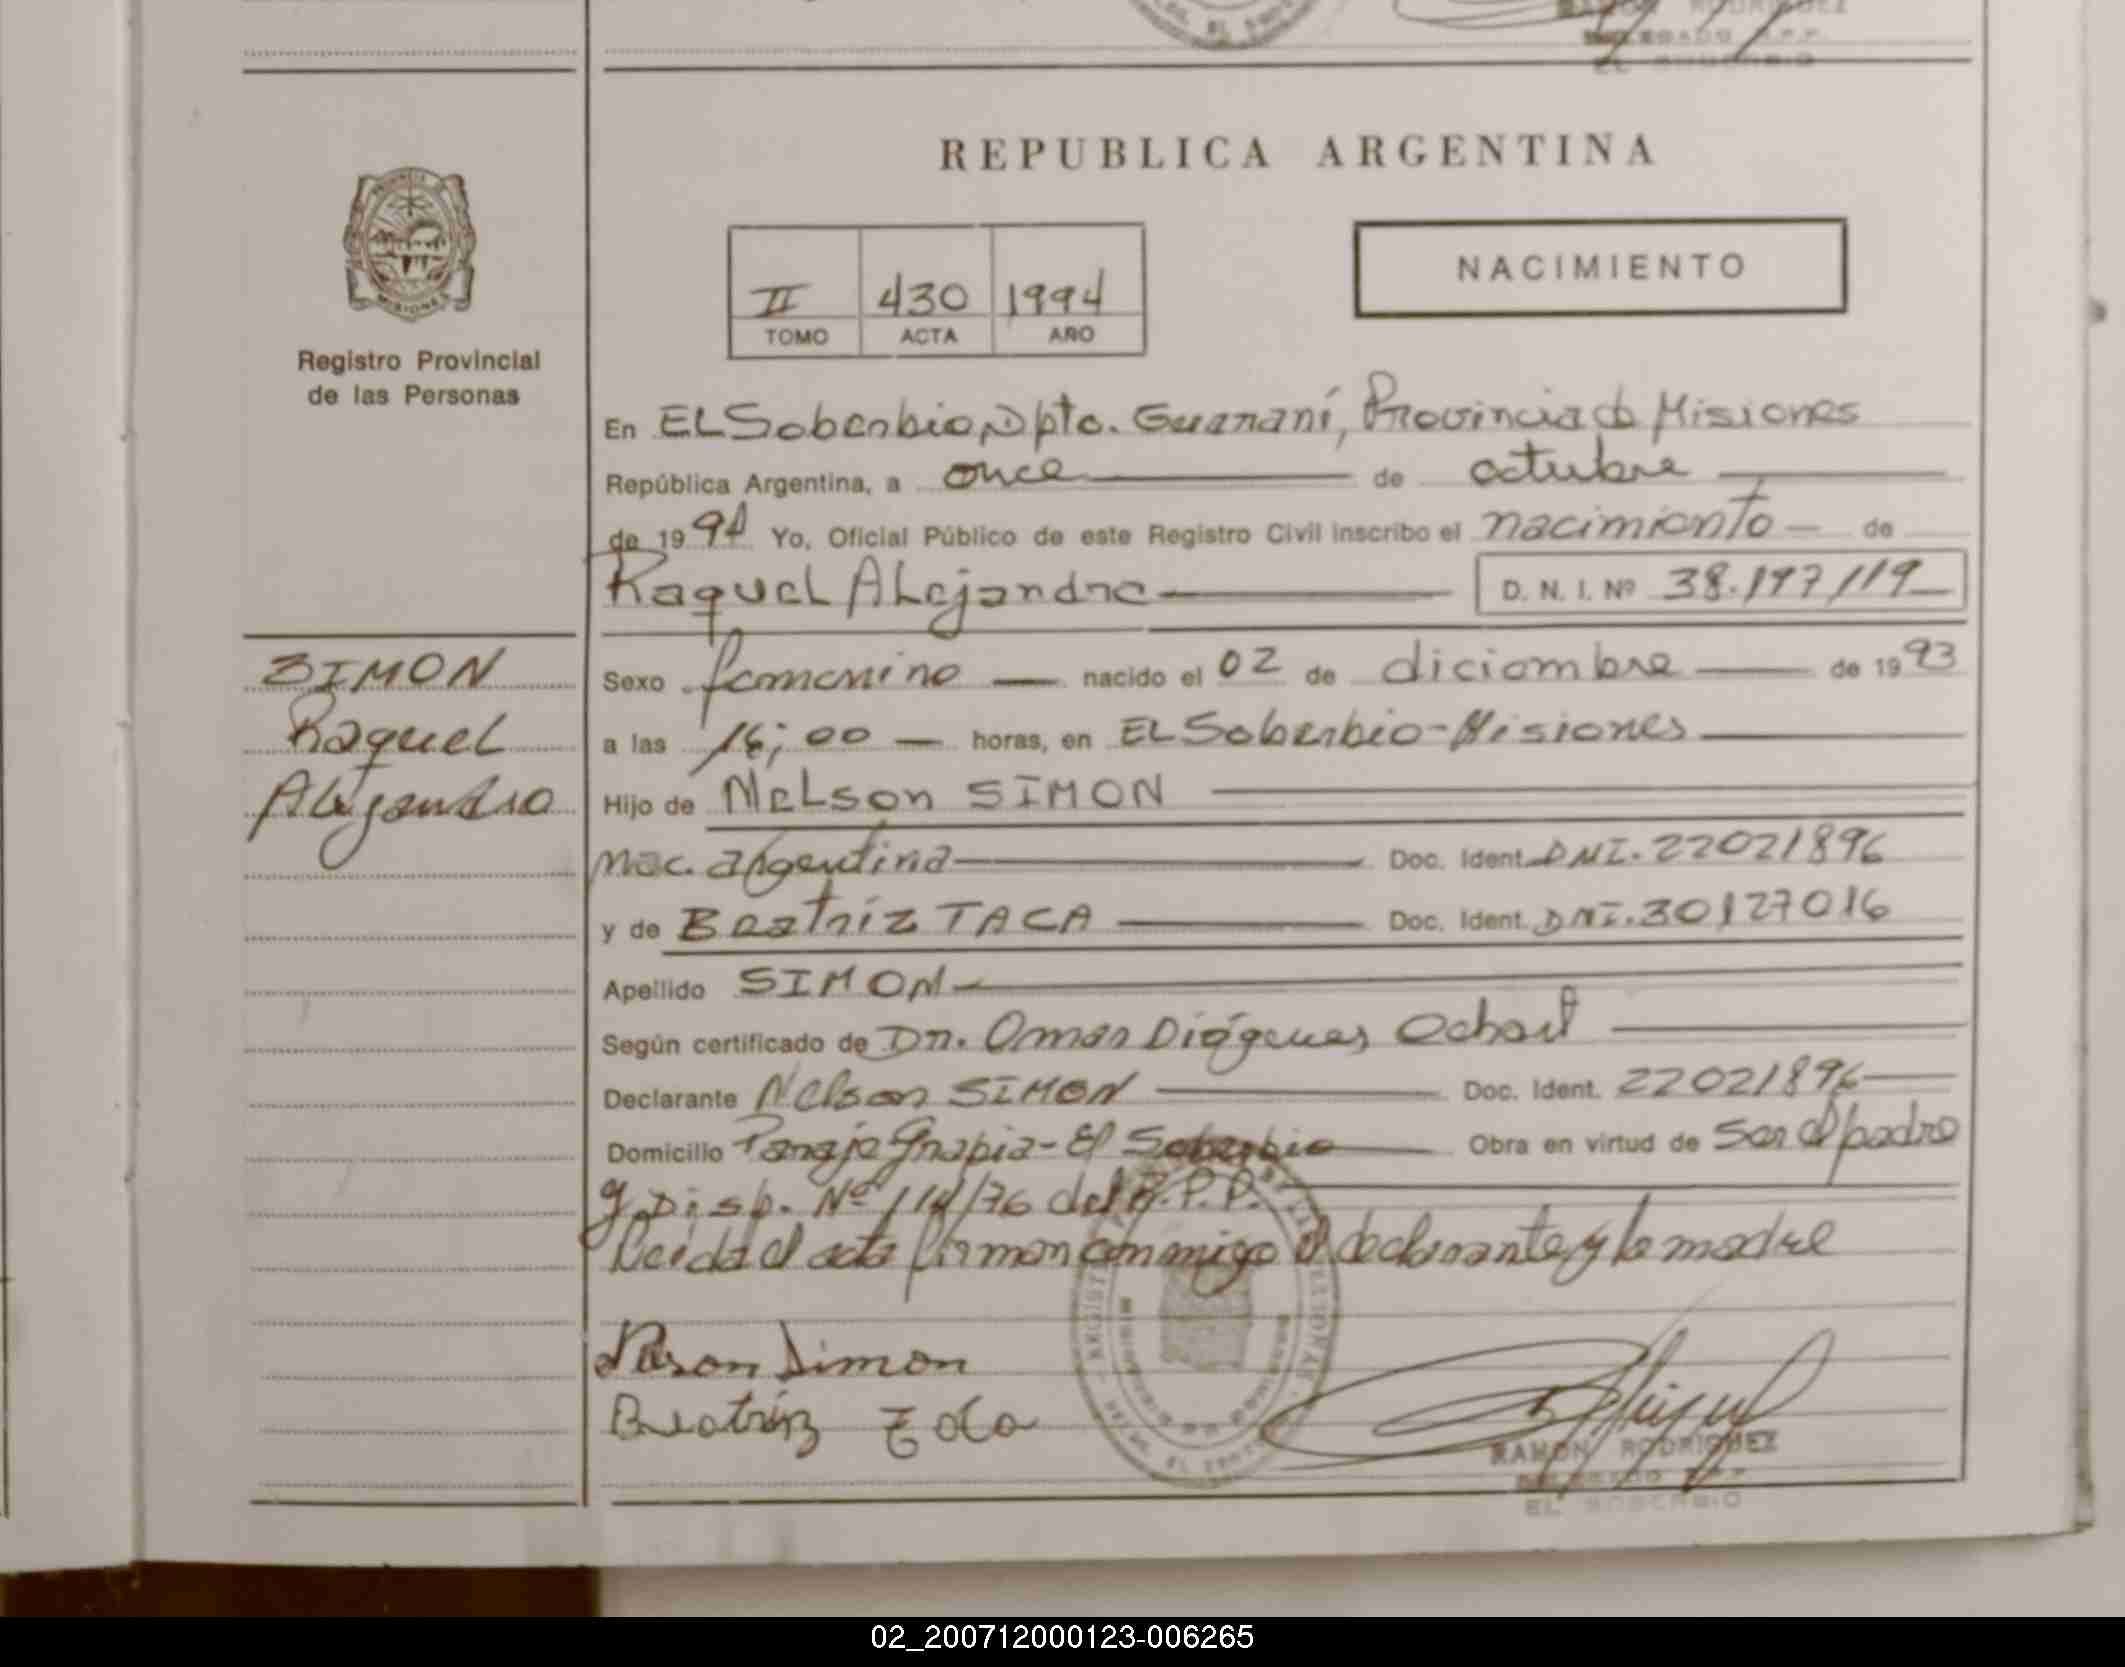 RAMON RODRIGUEZ
DELEGADO R.P.P.
EL SOBERBIO
REPUBLICA ARGENTINA
NACIMIENTO
II 430 1994
TOMO ACTA AÑO
PROVINCIA DE MISIONES
Registro Provincial
de las Personas
En EL Soberbio, Dpto. Guaraní, Provincia de Misiones
República Argentina, a once de octubre
de 1994 Yo, Oficial Público de este Registro Civil inscribo el nacimiento de
Raquel Alejandra D. N. I. Nº 38.197119
SIMON
Raquel
Alejandra
Sexo femenino nacido el 02 de diciembre de 1993
a las 16;00 horas, en EL Soberbio-Misiones
Hijo de Nelson SIMON
nac. argentina Doc. Ident. DNI.22021896
y de Beatríz TACA Doc. Ident. DNI.30127016
Apellido SIMON
Según certificado de Dr. Omar Diógenes
Declarante Nelson SIMON Doc. Ident. 22021896
Domicilio Paraje Grapia-El Soberbio Obra en virtud de Ser el padre
y Disp. Nº /76 del R.P.P.
Leida el acta firman conmigo el declarante y la madre
Simon
Beatriz
RAMON RODRIGUEZ
DELEGADO R.P.P.
EL SOBERBIO
02_200712000123-006265